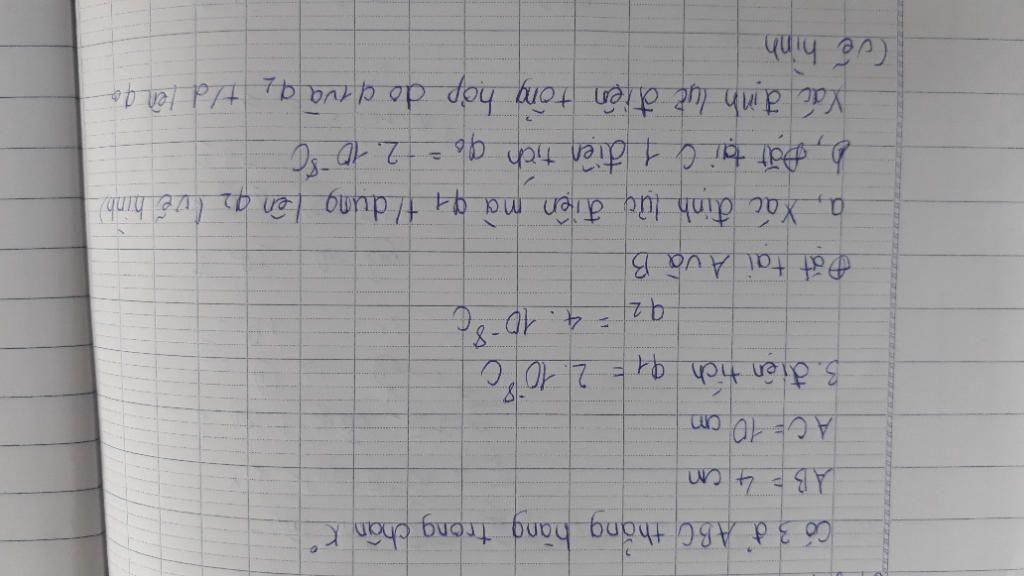 Có 3 đ' ABC thẳng hàng trong chân k°
AB = 4 cm
AC = 10 cm
3. điện tích q1 = 2.10⁻⁸C
q2 = 4.10⁻⁸C
Đặt tại A và B
a, Xác định lực điện mà q1 t/dụng lên q2 (vẽ hình)
b, Đặt tại C 1 điện tích q0 = -2.10⁻⁸C
Xác định lực điện tổng hợp do q1 và q2 t/d lên q0
(vẽ hình